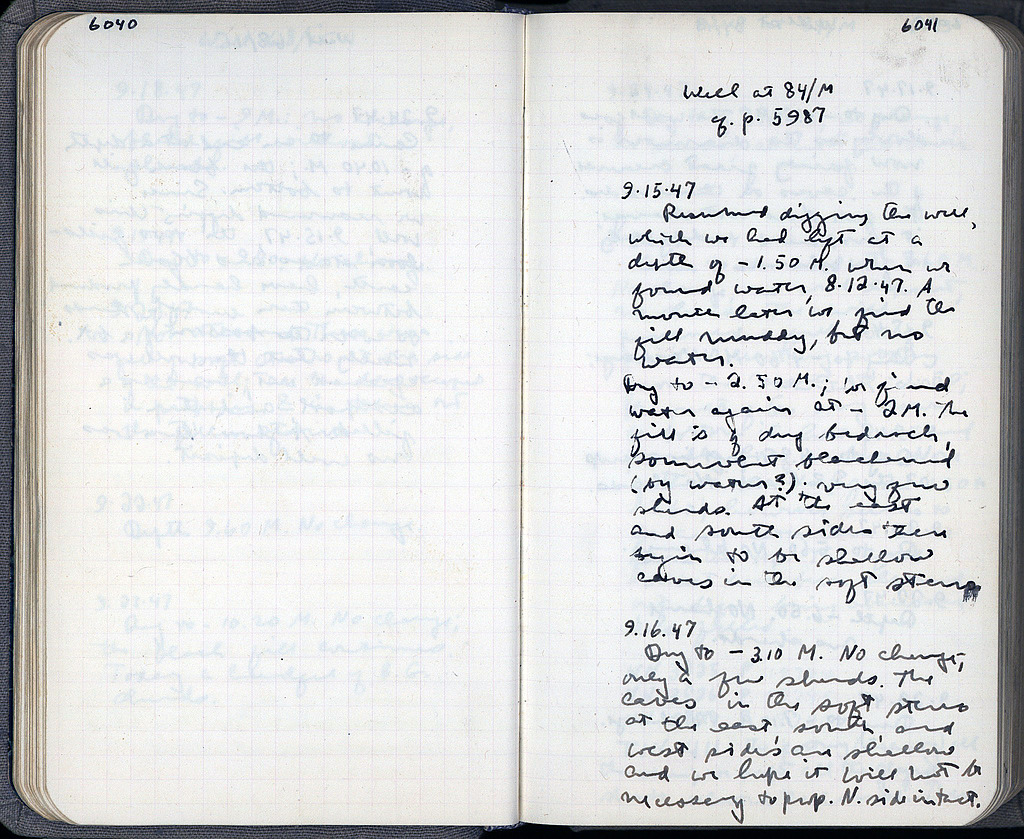 6040
6041
Well at 84/M
q. p. 5987
9.15.47
Resumed digging the well,
which we had left at a
depth of -1.50 M. when we
found water, 8.12.47. A
month later we find the
fill muddy, but no
water.
Dug to - 2.50 M.; we find
water again at - 2M. The
fill is of dug bedrock,
somewhat blackened
(by water?). Very few
sherds. At the east
and south sides there
begin to be shallow
caves in the soft stereo
9.16.47
Dug to - 3.10 M. No change,
only a few sherds. The
caves in the soft stereo
at the east, south, and
west sides are shallow
and we hope it will not be
necessary to prop. N. side intact.